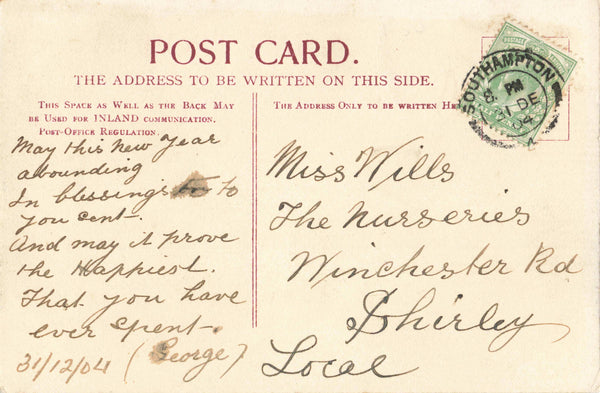 POST CARD.
THE ADDRESS TO BE WRITTEN ON THIS SIDE.
THIS SPACE AS WELL AS THE BACK MAY
BE USED FOR INLAND COMMUNICATION.
POST-OFFICE REGULATION.
May this New Year
abounding
In blessings to
you cent.
And may it prove
the Happiest.
That you have
ever spent.
31/12/04 (George)
THE ADDRESS ONLY TO BE WRITTEN
Miss Wills
The Nurseries
Winchester Rd
Shirley
Local
SOUTHAMPTON
PM
31 DE
04
POSTAGE